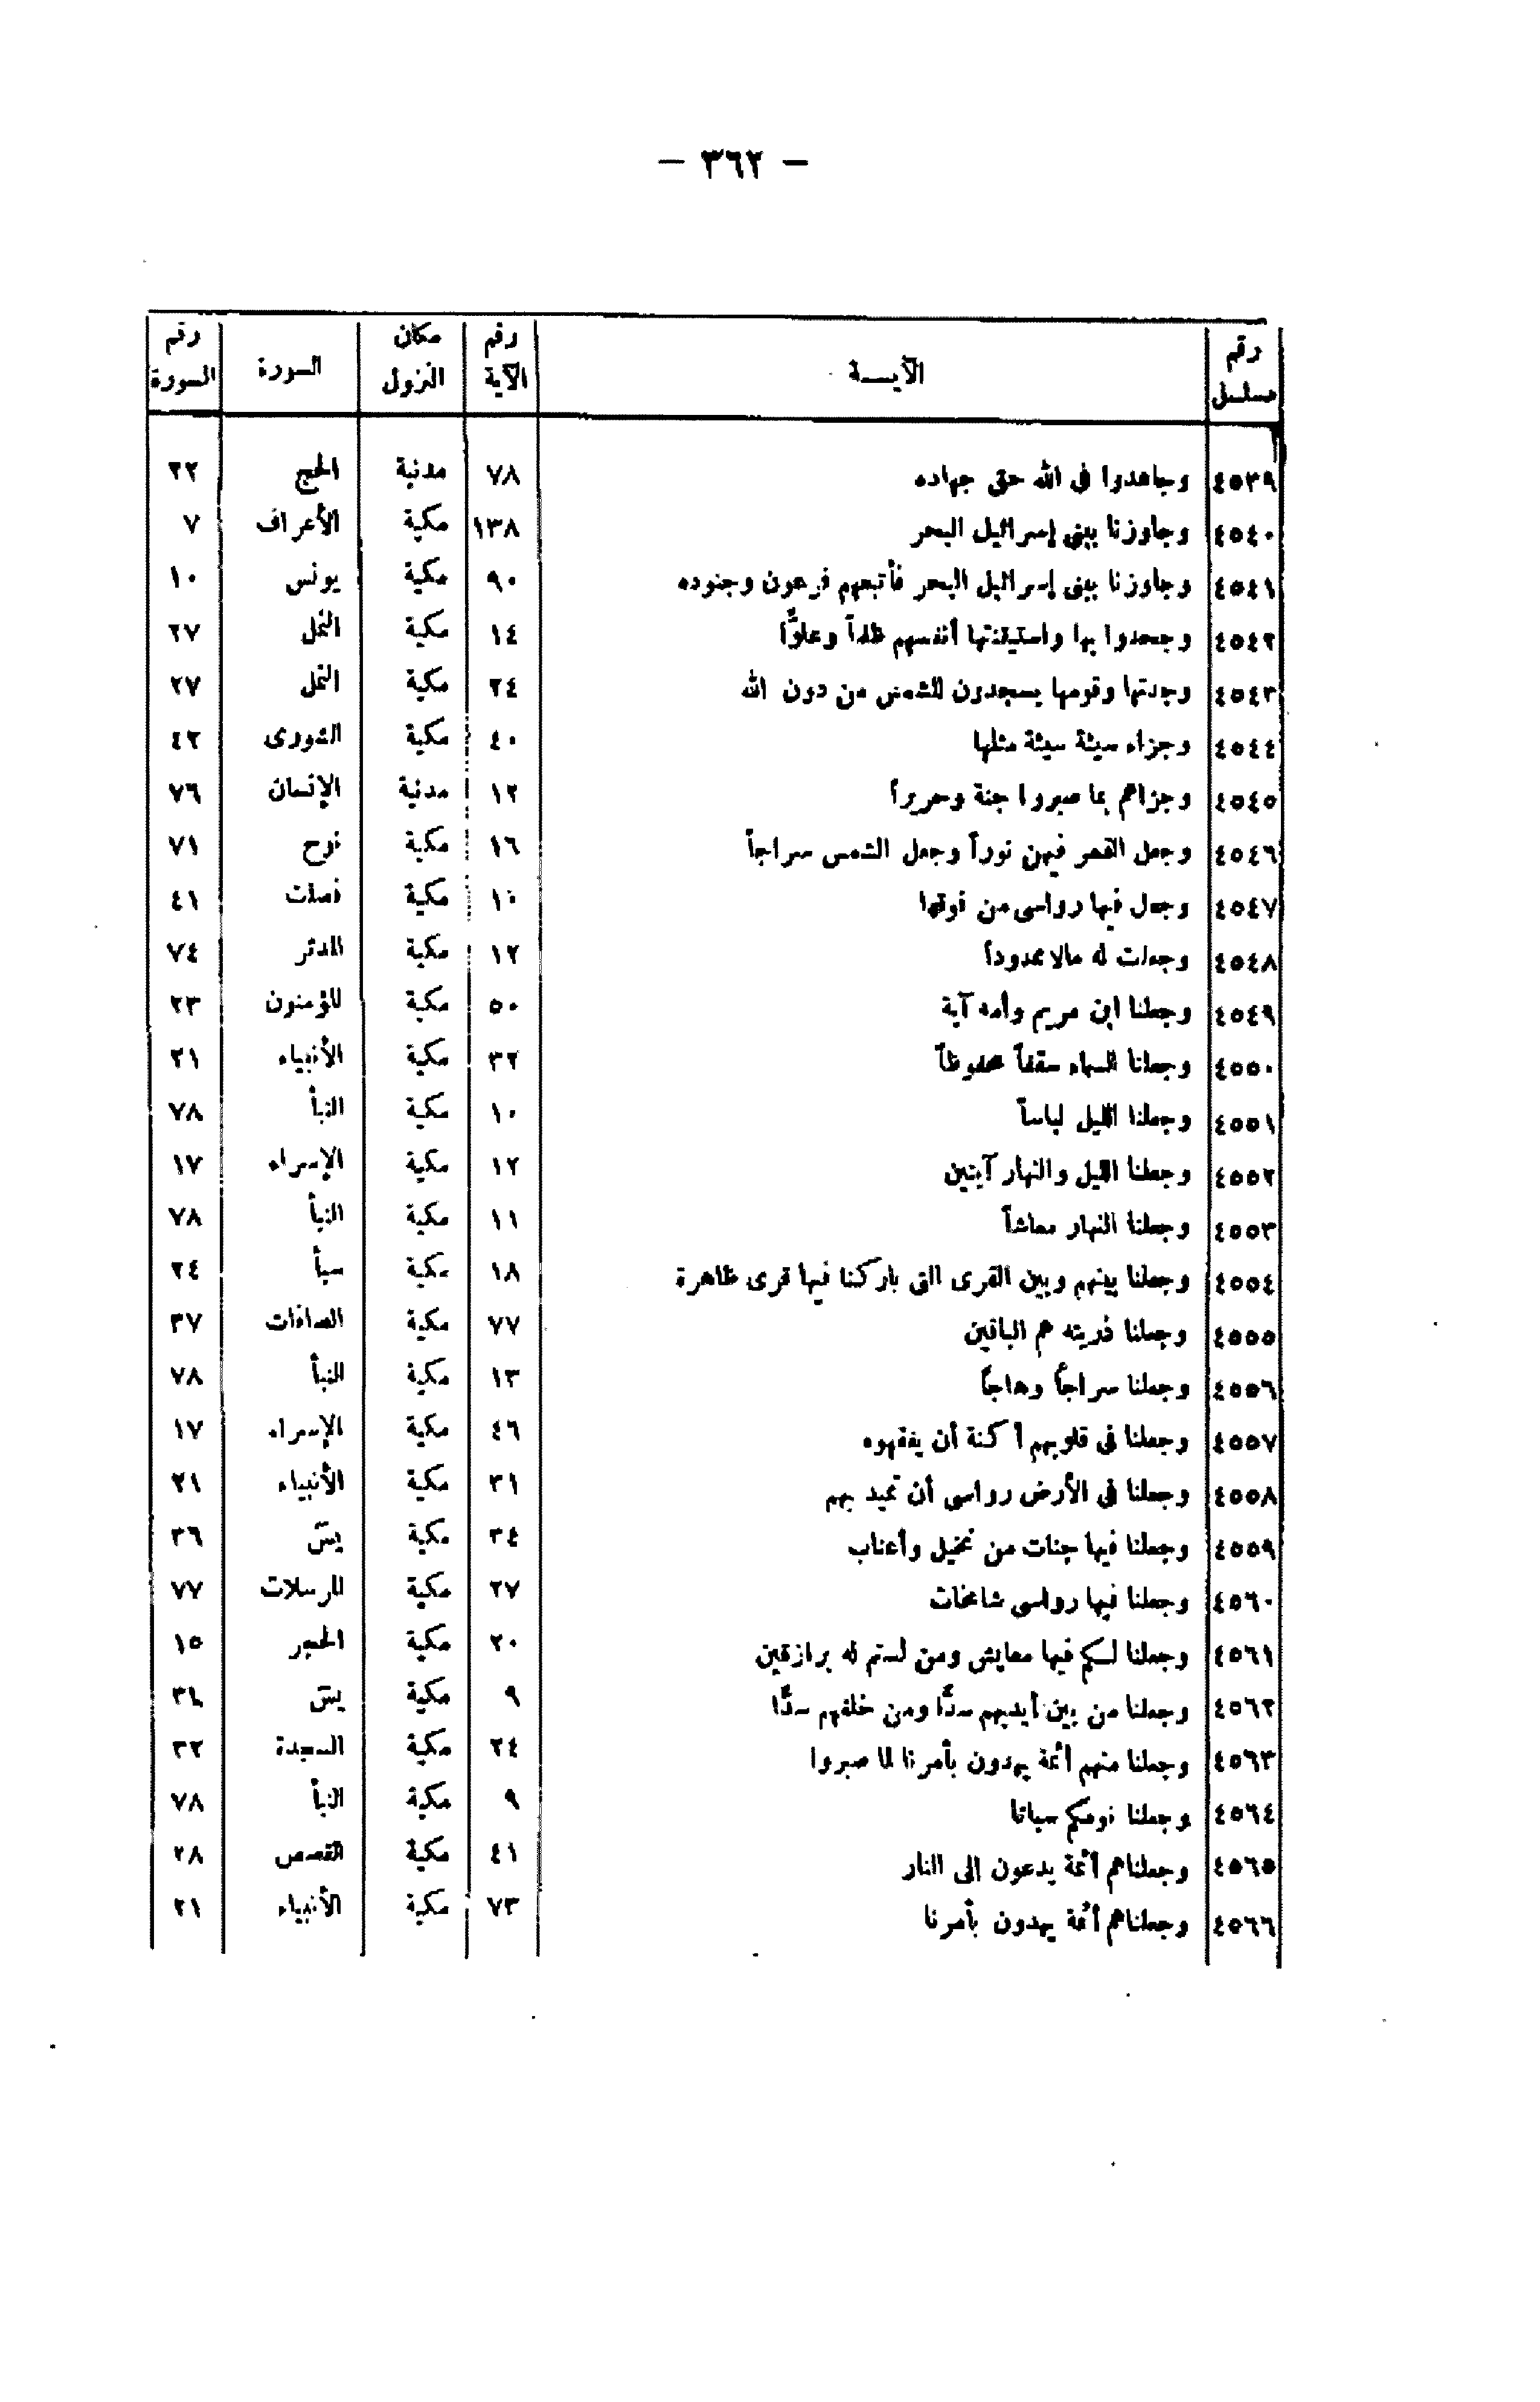 — ٣٦٢ —
رقم مسلسل | الآيـــة | رقم الآية | مكان النزول | السورة | رقم السورة
٤٥٣٩ | وجاهدوا فى الله حق جهاده | ٧٨ | مدنية | الحج | ٢٢
٤٥٤٠ | وجاوزنا ببنى إسرائيل البحر | ١٣٨ | مكية | الأعراف | ٧
٤٥٤١ | وجاوزنا ببنى إسرائيل البحر فأتبعهم فرعون وجنوده | ٩٠ | مكية | يونس | ١٠
٤٥٤٢ | وجحدوا بها واستيقنتها أنفسهم ظلماً وعلوًّا | ١٤ | مكية | النمل | ٢٧
٤٥٤٣ | وجدتها وقومها يسجدون للشمس من دون الله | ٢٤ | مكية | النمل | ٢٧
٤٥٤٤ | وجزاء سيئة سيئة مثلها | ٤٠ | مكية | الشورى | ٤٢
٤٥٤٥ | وجزاهم بما صبروا جنة وحريراً | ١٢ | مدنية | الإنسان | ٧٦
٤٥٤٦ | وجعل القمر فيهن نوراً وجعل الشمس سراجاً | ١٦ | مكية | نوح | ٧١
٤٥٤٧ | وجعل فيها رواسى من فوقها | ١٠ | مكية | فصلت | ٤١
٤٥٤٨ | وجعلت له مالا ممدوداً | ١٢ | مكية | المدثر | ٧٤
٤٥٤٩ | وجعلنا ابن مريم وأمه آية | ٥٠ | مكية | المؤمنون | ٢٣
٤٥٥٠ | وجعلنا السماء سقفاً محفوظاً | ٣٢ | مكية | الأنبياء | ٢١
٤٥٥١ | وجعلنا الليل لباساً | ١٠ | مكية | النبأ | ٧٨
٤٥٥٢ | وجعلنا الليل والنهار آيتين | ١٢ | مكية | الإسراء | ١٧
٤٥٥٣ | وجعلنا النهار معاشاً | ١١ | مكية | النبأ | ٧٨
٤٥٥٤ | وجعلنا بينهم وبين القرى التى باركنا فيها قرى ظاهرة | ١٨ | مكية | سبأ | ٣٤
٤٥٥٥ | وجعلنا ذريته هم الباقين | ٧٧ | مكية | الصافات | ٣٧
٤٥٥٦ | وجعلنا سراجاً وهاجاً | ١٣ | مكية | النبأ | ٧٨
٤٥٥٧ | وجعلنا فى قلوبهم أكنة أن يفقهوه | ٤٦ | مكية | الإسراء | ١٧
٤٥٥٨ | وجعلنا فى الأرض رواسى أن تميد بهم | ٣١ | مكية | الأنبياء | ٢١
٤٥٥٩ | وجعلنا فيها جنات من نخيل وأعناب | ٣٤ | مكية | يسٓ | ٣٦
٤٥٦٠ | وجعلنا فيها رواسى شامخات | ٢٧ | مكية | المرسلات | ٧٧
٤٥٦١ | وجعلنا لكم فيها معايش ومن لستم له برازقين | ٢٠ | مكية | الحجر | ١٥
٤٥٦٢ | وجعلنا من بين أيديهم سدًّا ومن خلفهم سدًّا | ٩ | مكية | يسٓ | ٣٦
٤٥٦٣ | وجعلنا منهم أئمة يهدون بأمرنا لما صبروا | ٢٤ | مكية | السجدة | ٣٢
٤٥٦٤ | وجعلنا نومكم سباتا | ٩ | مكية | النبأ | ٧٨
٤٥٦٥ | وجعلناهم أئمة يدعون إلى النار | ٤١ | مكية | القصص | ٢٨
٤٥٦٦ | وجعلناهم أئمة يهدون بأمرنا | ٧٣ | مكية | الأنبياء | ٢١